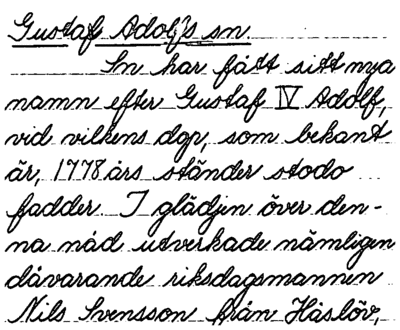 Gustaf Adolfs sn.
Sn har fått sitt nya
namn efter Gustaf IV Adolf,
vid vilkens dop, som bekant
är, 1778 års ständer stodo
fadder. I glädjen över den-
na nåd utverkade nämligen
dåvarande riksdagsmannen
Nils Svensson från Håslöv,